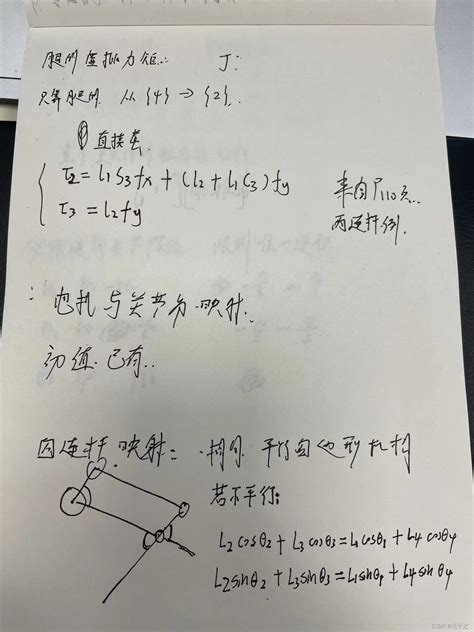 腿的虚拟力矩: J:
只算腿的. 从{4} → {2}.
① 直接套
τ2 = l1s3fx + (l2 + l1c3)fy
τ3 = l2fy
来自P110页.
两连杆例.
电机与关节的映射.
初值已有..
四连杆映射= 相同 平行四边形机构
若不平行:
L2 cosθ2 + L3 cosθ3 = L1 cosθ1 + L4 cosθ4
L2 sinθ2 + L3 sinθ3 = L1 sinθ1 + L4 sinθ4